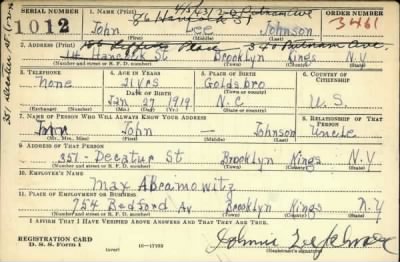 SERIAL NUMBER
1. NAME (Print)
ORDER NUMBER
1012
John Lee Johnson
3461
(First) (Middle) (Last)
2. ADDRESS (Print)
340 Putnam Ave.
St Brooklyn Kings N.Y
(Number and street or R. F. D. number) (Town) (County) (State)
3. TELEPHONE
4. AGE IN YEARS
5. PLACE OF BIRTH
6. COUNTRY OF CITIZENSHIP
None
21 yrs
Goldsbro
DATE OF BIRTH
Jan 27 1919
N.C
U.S.
(Exchange) (Number) (Mo.) (Day) (Yr.) (State or country)
7. NAME OF PERSON WHO WILL ALWAYS KNOW YOUR ADDRESS
8. RELATIONSHIP OF THAT PERSON
John — Johnson
Uncle
(Mr., Mrs., Miss) (First) (Middle) (Last)
9. ADDRESS OF THAT PERSON
351 - Decatur St Brooklyn Kings N.Y
(Number and street or R. F. D. number) (Town) (County) (State)
10. EMPLOYER'S NAME
Max Abramowitz
11. PLACE OF EMPLOYMENT OR BUSINESS
754 Bedford Av Brooklyn Kings N.Y
(Number and street or R. F. D. number) (Town) (County) (State)
I AFFIRM THAT I HAVE VERIFIED ABOVE ANSWERS AND THAT THEY ARE TRUE.
REGISTRATION CARD
D. S. S. Form 1
(over)
(Registrant's signature)